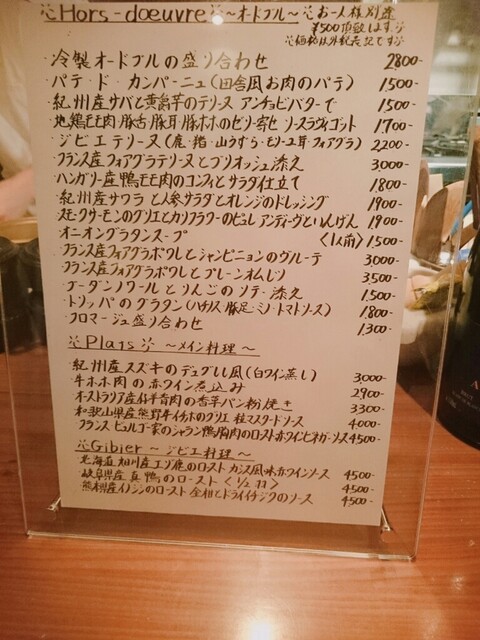 Hors-doeuvre ～オードブル～ ※お一人様別途
¥500頂致します※
※価格は外税表記です※
・冷製オードブルの盛り合わせ 2800-
・パテ・ド・カンパーニュ(田舎風お肉のパテ) 1,500-
・紀州産サバと黄金芋のテリース アンチョビバターで 1,500-
・地鶏モモ肉・豚舌・豚耳・豚ホホのゼリー寄せ ソースラヴィゴット 1,700-
・ジビエテリーヌ(鹿・猪・山うずら・モリーユ茸・フォアグラ) 2,200-
・フランス産フォアグラテリーヌとブリオッシュ添え 3,000-
・ハンガリー産鴨モモ肉のコンフィとサラダ仕立て 1,800-
・紀州産サワラと人参サラダとオレンジのドレッシング 1,900-
・スモークサーモンのグリエとカリフラワーのピュレ アンディーヴといんげん 1,900-
・オニオングラタンスープ 〈1人前〉1,500-
・フランス産フォアグラポワレとシャンピニョンのヴルーテ 3,000-
・フランス産フォアグラポワレとプレーンオムレツ 3,500-
・ブーダンノワールとりんごのソテー添え 1,500-
・トリッパのグラタン(ハチノス・豚足・ミノ・トマトソース) 1,800-
・フロマージュ盛り合わせ 1,300-
※Plats※ ～メイン料理～
・紀州産スズキのデュグレレ風(白ワイン蒸し) 3,000-
・牛ホホ肉の赤ワイン煮込み 2,900-
・オーストラリア産仔羊背肉の香草パン粉焼き 3,300-
・和歌山県産熊野牛イチボのグリエ 粒マスタードソース 4,000-
・フランス ビュルゴー家のシャラン鴨胸肉のロースト赤ワインビネガーソース 4500-
※Gibier～ジビエ料理～
・北海道 相川産エゾ鹿のロースト カシス風味赤ワインソース 4500-
・岐阜県産 真鴨のロースト〈1/2羽〉 4500-
・熊本産イノシシのロースト 金柑とドライイチジクのソース 4500-